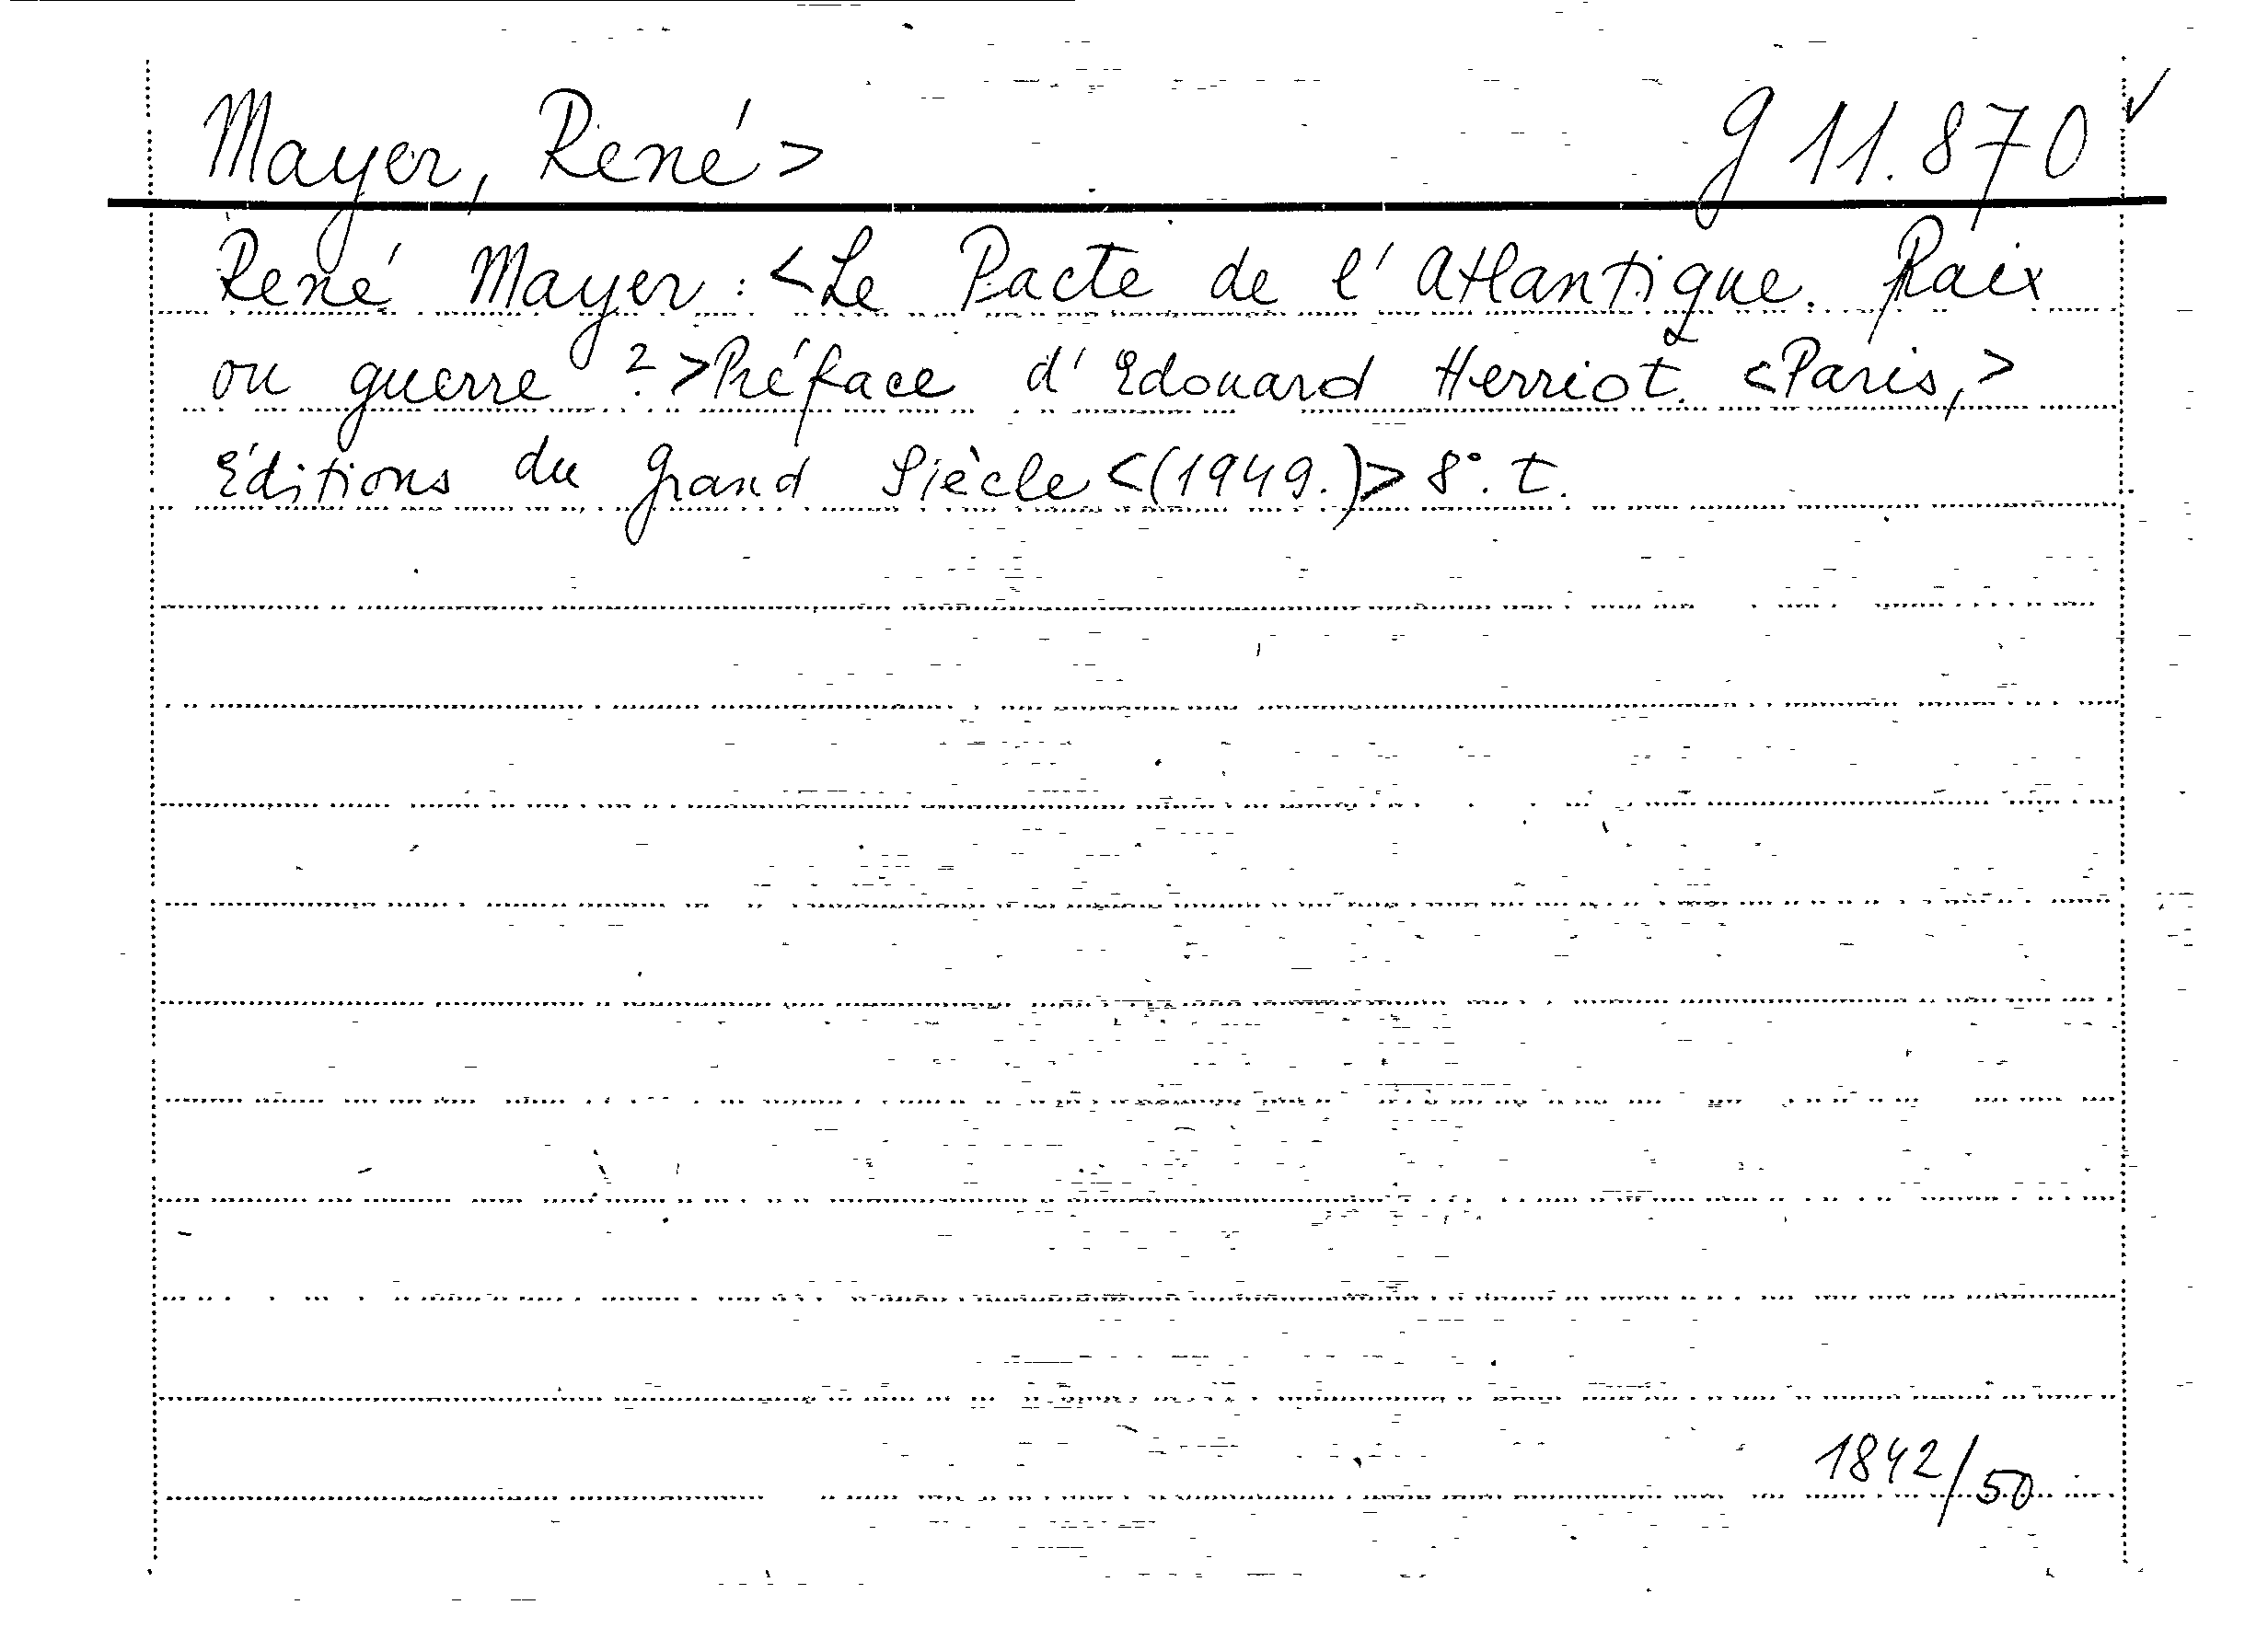 Mayer, René> g 11.870 ✓
René Mayer: <Le Pacte de l'Atlantique. Paix
ou guerre ?> Préface d'Edouard Herriot. <Paris,>
Éditions du Grand Siècle <(1949.)> 8°. t.
1842/50